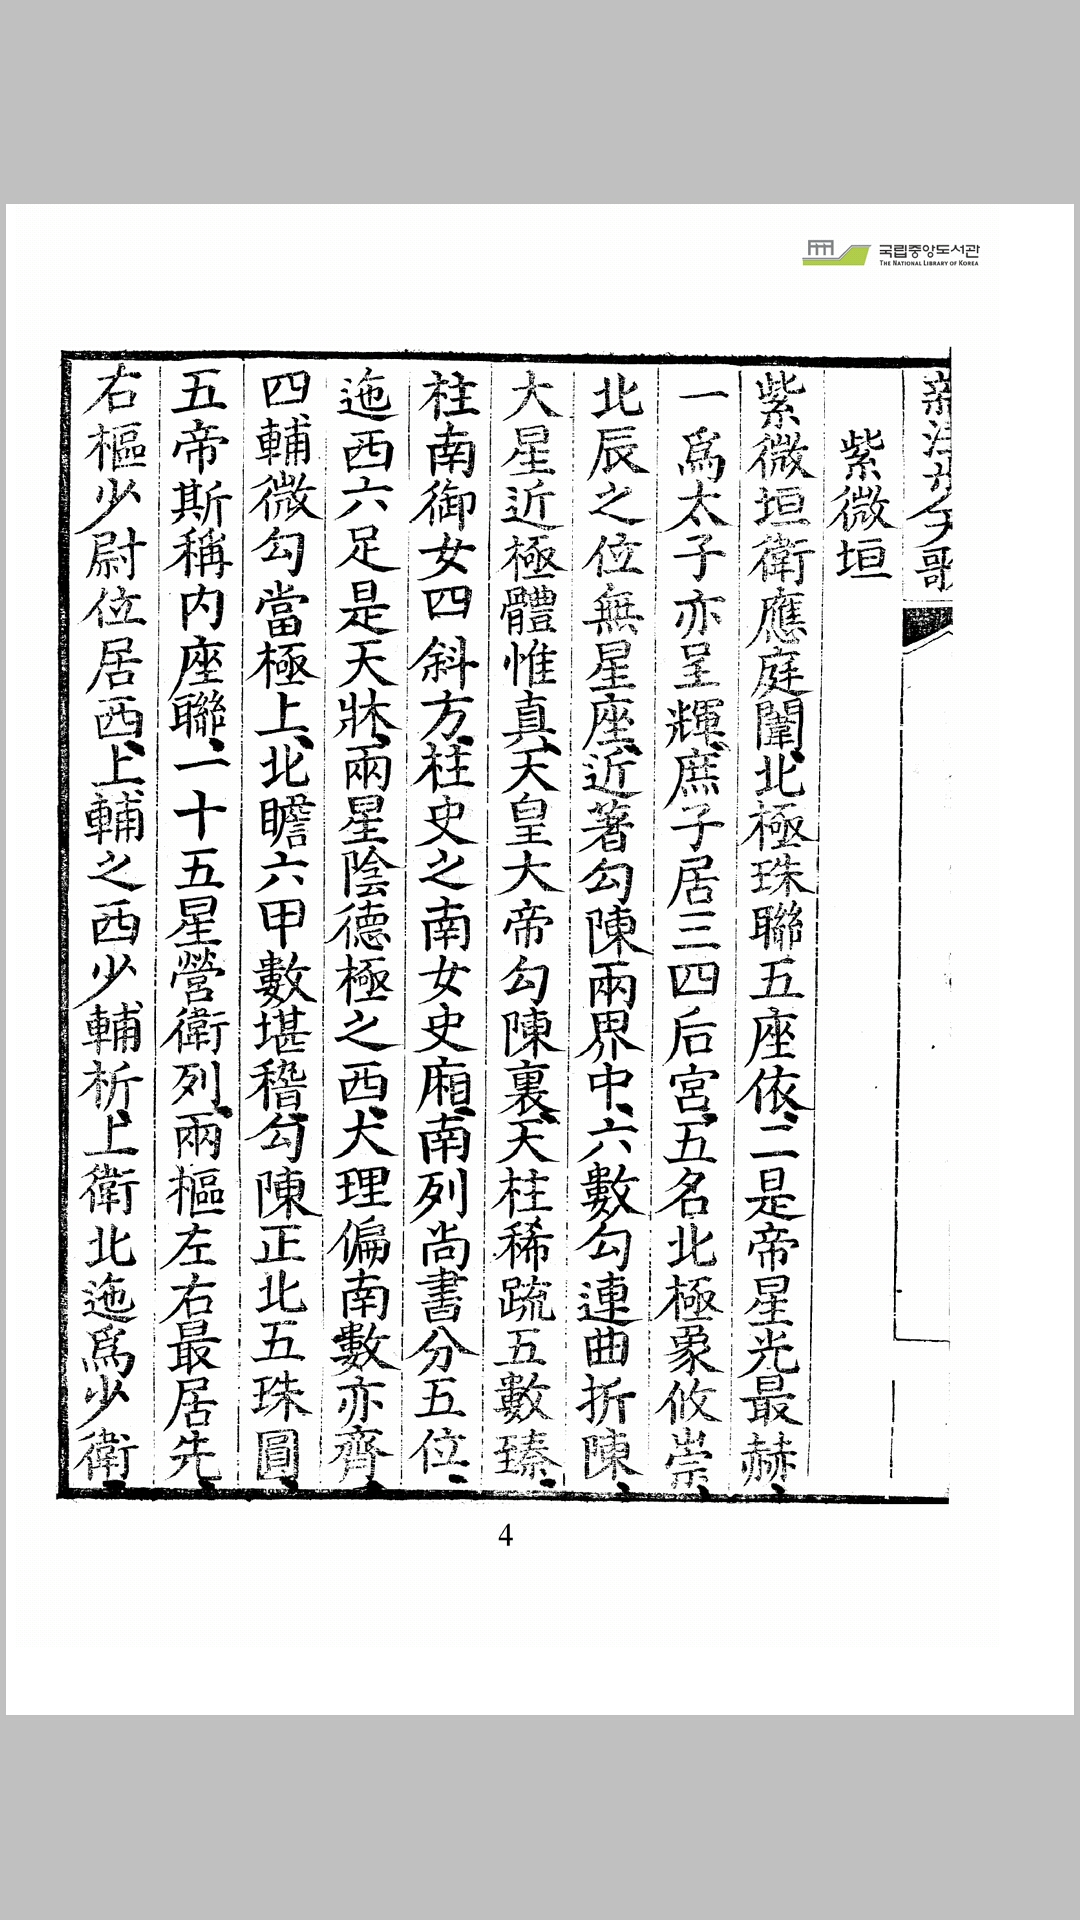 국립중앙도서관
THE NATIONAL LIBRARY OF KOREA
新法步天歌
紫微垣
紫微垣衛應庭闈、北極珠聯五座依、二是帝星光最赫、
一爲太子亦呈輝、庶子居三四后宮、五名北極象攸崇、
北辰之位無星座、近著勾陳兩界中、六數勾連曲折陳、
大星近極體惟真、天皇大帝勾陳裏、天柱稀疏五數臻、
柱南御女四斜方、柱史之南女史廂、南列尚書分五位、
迤西六足是天牀、兩星陰德極之西、大理偏南數亦齊、
四輔微勾當極上、北瞻六甲數堪稽、勾陳正北五珠圓、
五帝斯稱内座聯、一十五星營衛列、兩樞左右最居先、
右樞少尉位居西、上輔之西少輔析、上衛北迤爲少衛、
4